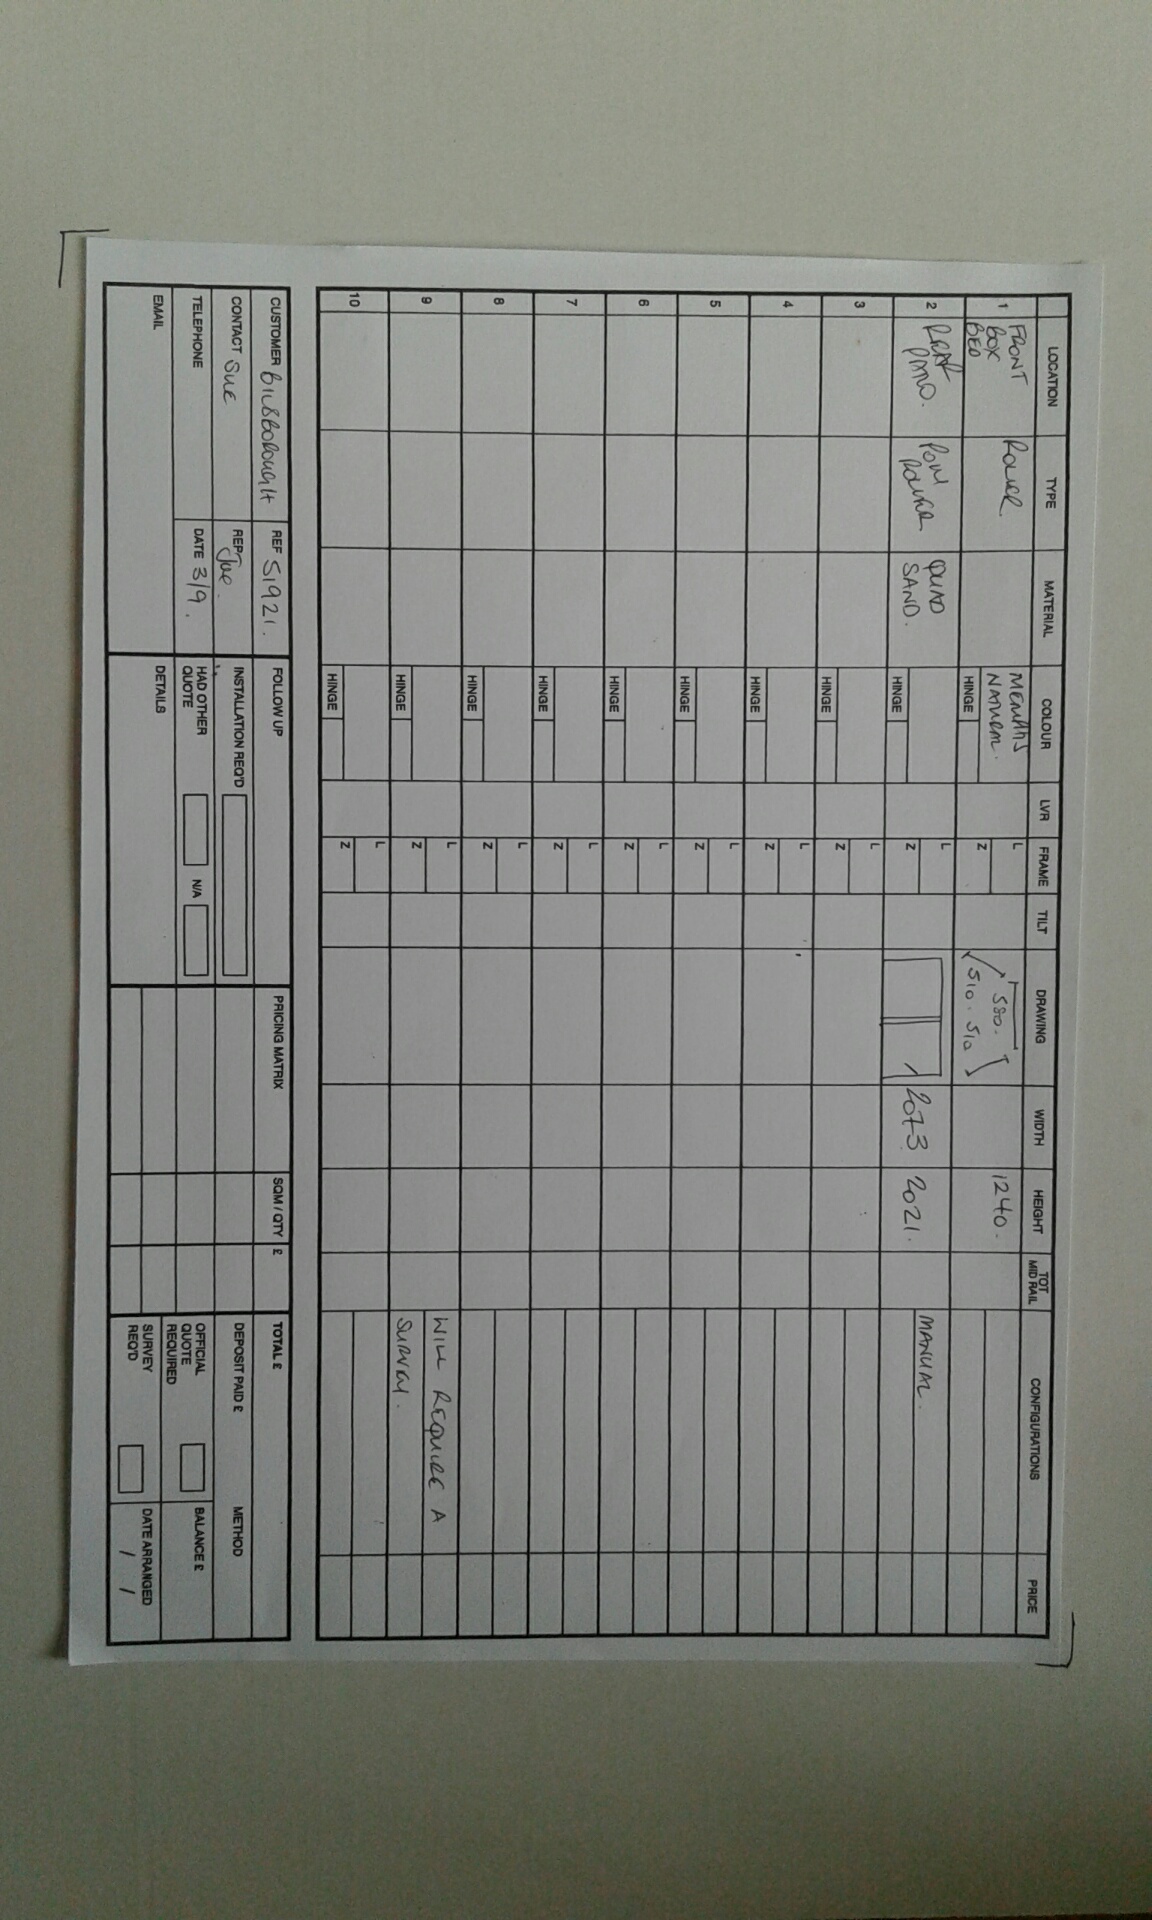 LOCATION TYPE MATERIAL COLOUR LVR FRAME TILT DRAWING WIDTH HEIGHT TOT MID RAIL CONFIGURATIONS PRICE
1 FRONT BOX BED ROLLER HINGE L Z 580. 510. 510 1240.
2 ROLLER QUAD SAND. HINGE L Z 2073 2021. MANUAL.
3 HINGE L Z
4 HINGE L Z
5 HINGE L Z
6 HINGE L Z
7 HINGE L Z
8 HINGE L Z
9 HINGE L Z WILL REQUIRE A
SURVEY.
10 HINGE L Z
CUSTOMER BILSBOROUGH REF S1921. FOLLOW UP PRICING MATRIX SQM / QTY £ TOTAL £
CONTACT Sue REP Joe. INSTALLATION REQ'D DEPOSIT PAID £ METHOD
TELEPHONE DATE 3/9. HAD OTHER QUOTE N/A OFFICIAL QUOTE REQUIRED BALANCE £
EMAIL DETAILS SURVEY REQ'D DATE ARRANGED / /